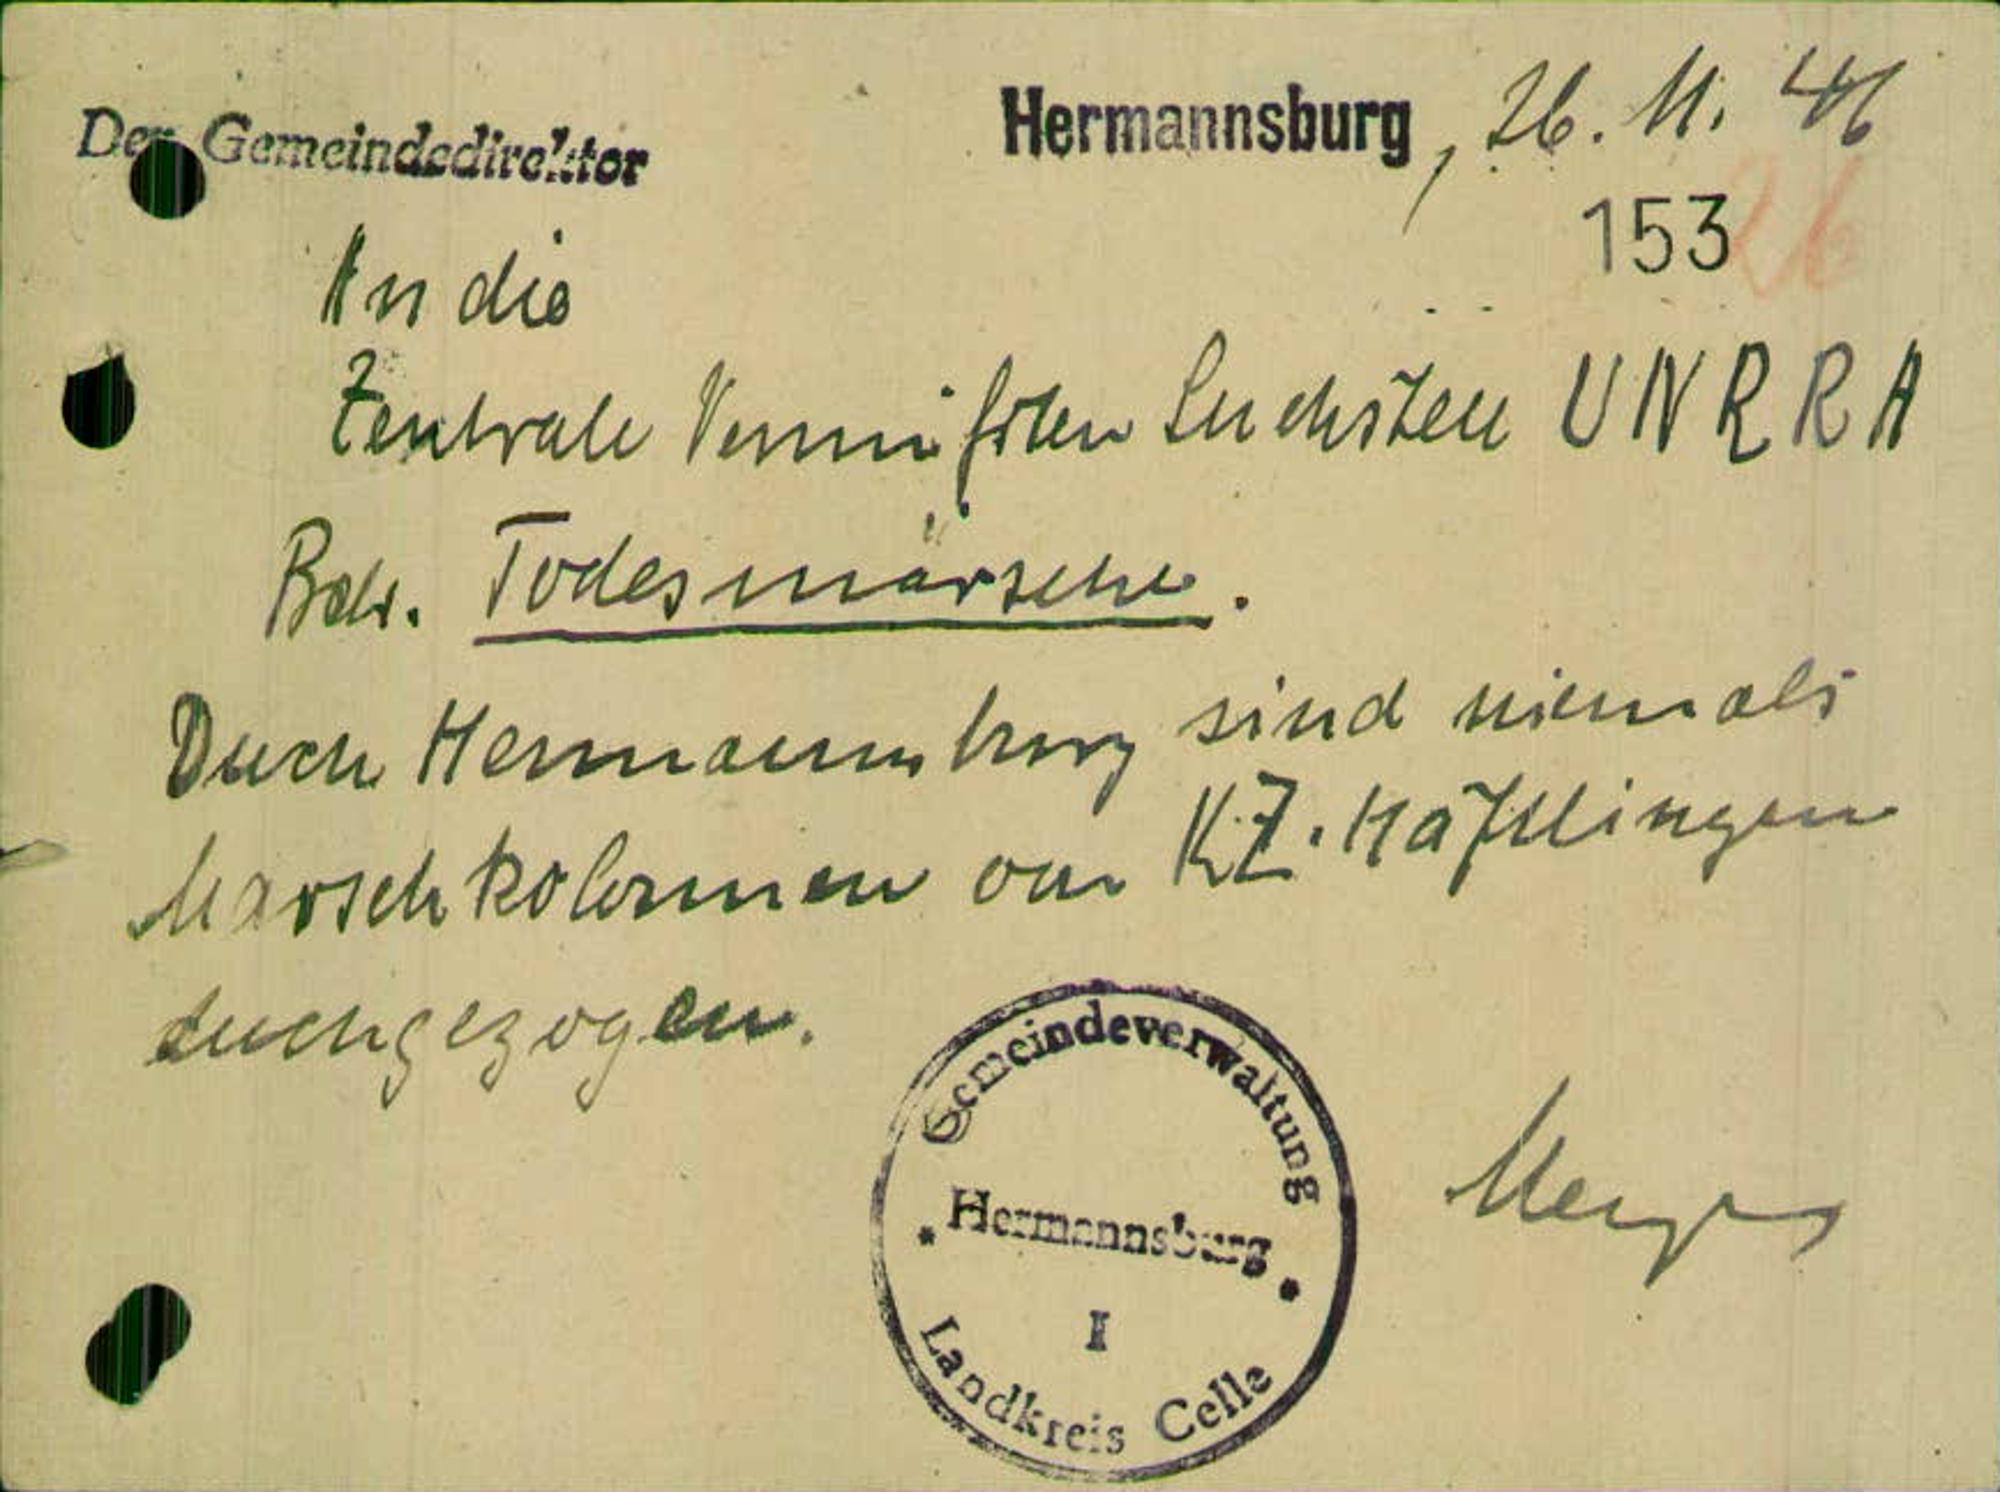 Der Gemeindedirektor
Hermannsburg, 26. 11. 46
153
26
An die
Zentrale Vermißten Suchstelle UNRRA
Betr. Todesmärsche.
Durch Hermannsburg sind niemals
Marschkolonnen von KZ. Häftlingen
durchgezogen.
Gemeindeverwaltung
Hermannsburg
I
Landkreis Celle